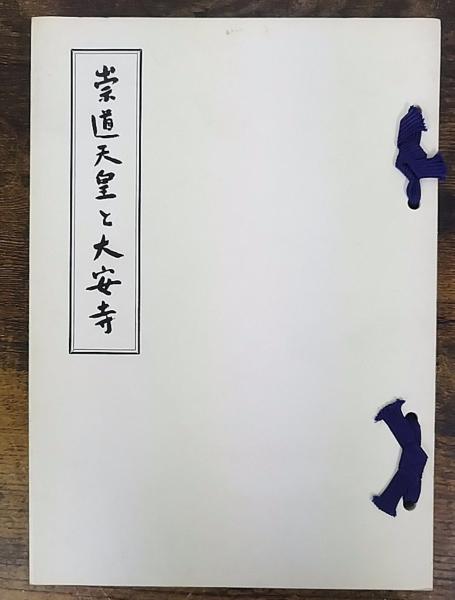 崇道天皇と大安寺